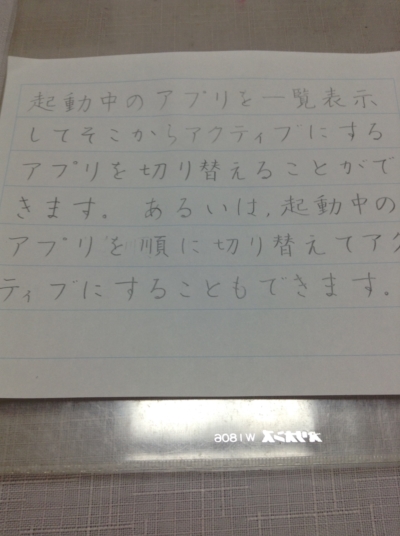 起動中のアプリを一覧表示
してそこからアクティブにする
アプリを切り替えることがで
きます。あるいは,起動中の
アプリを順に切り替えてアク
ティブにすることもできます。
W1806